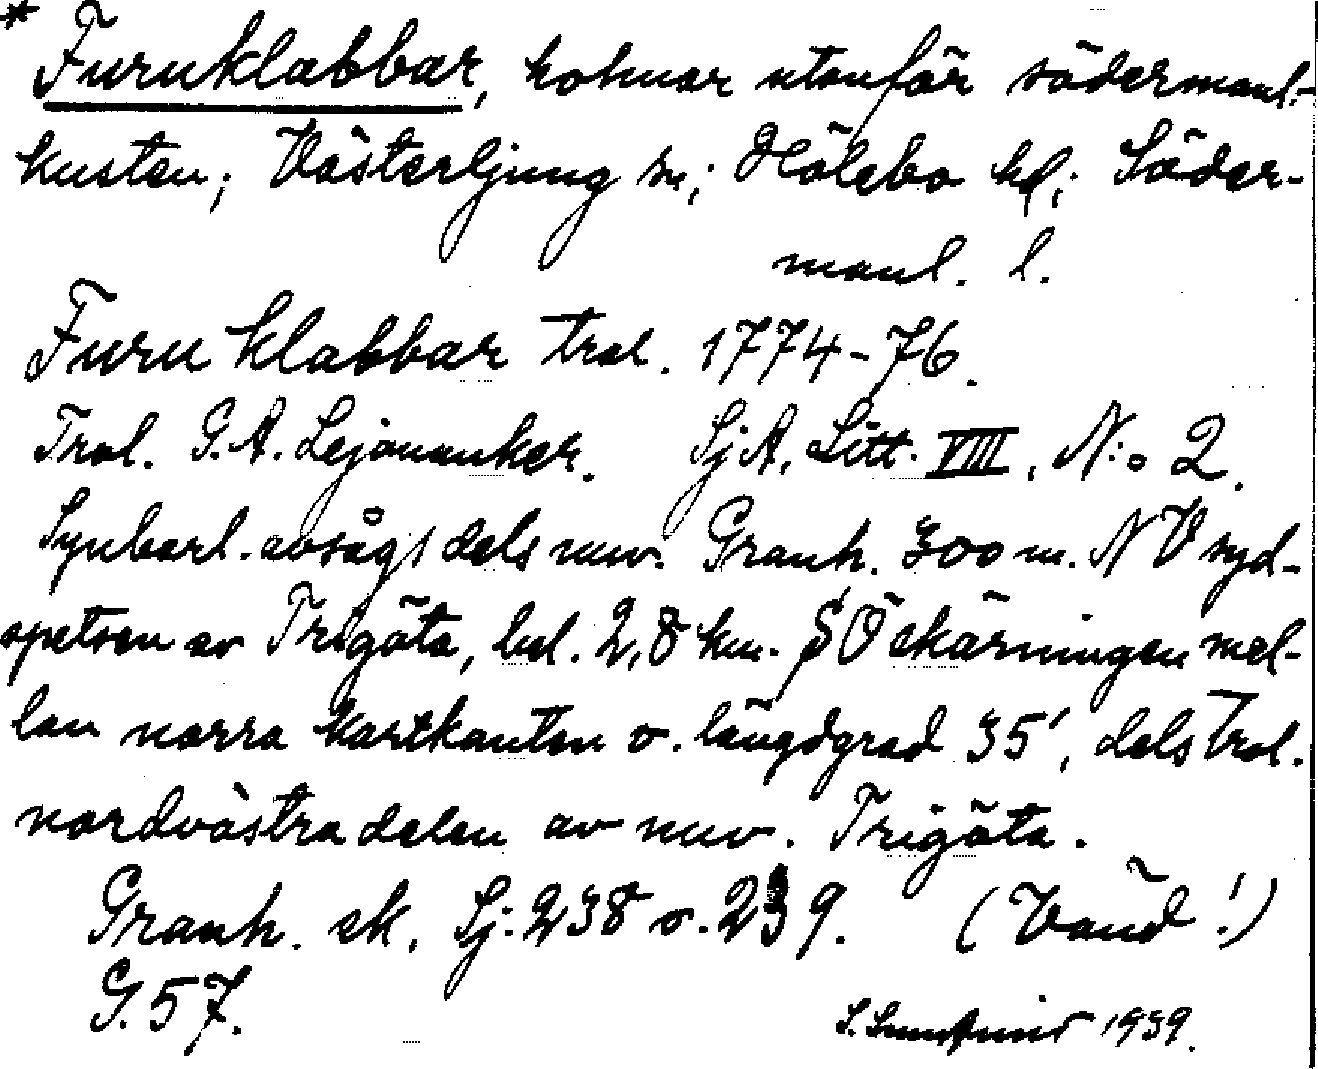 * Furuklabbar, holmar utanför södermanl.-
kusten; Västerljung sn; Hölebo hd; Söder-
manl. l.
Furu klabbar trol. 1774-76.
Trol. G. A. Lejonanker. SjA, Litt. VIII, N:o 2.
Synbarl. avsågs dels nuv. Granh. 300 m. NV syd-
spetsen av Trigöta, bel. 2,8 km. SÖ skärningen mel-
lan norra kartkanten o. längdgrad 35', dels trol.
nordvästra delen av nuv. Trigöta.
Granh. sk. Sj. 238 o. 239. (Vänd!)
G. 57.
S. 1939.